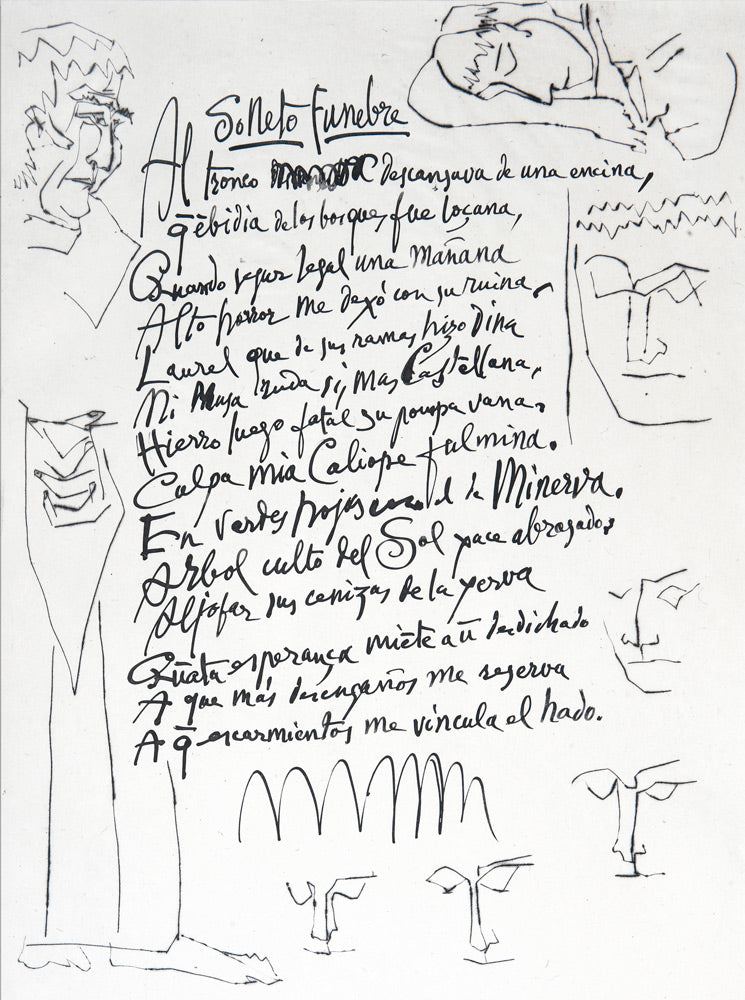 Soneto funebre
Al tronco descansava de una encina,
q̄ ēbidia de los bosques fue loçana,
Quando segur legal una mañana
Alto horror me dexó con su ruina.
Laurel que de sus ramas hizo dina
Mi Musa ruda sí, mas Castellana,
Hierro luego fatal su pompa vana.
Culpa mia Caliope fulmina.
En verdes hojas cano el de Minerva.
Arbol culto del Sol yace abrasado,
Aljofar sus cenizas de la yerva
Quāta esperança miēte a ū desdichado
A que más desengaños me reserva
A q̄ escarmientos me vincula el hado.